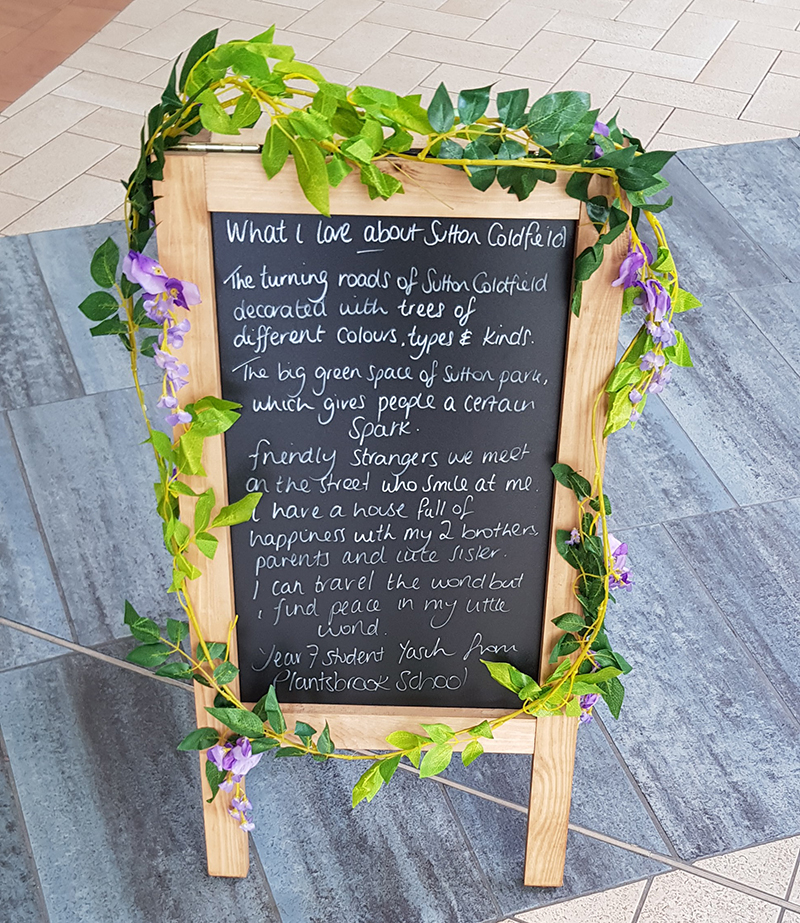 What I love about Sutton Coldfield
The turning roads of Sutton Coldfield
decorated with trees of
different colours, types & kinds.
The big green space of Sutton park,
which gives people a certain
Spark.
friendly strangers we meet
on the street who smile at me.
I have a house full of
happiness with my 2 brothers,
parents and cute sister.
I can travel the world but
I find peace in my little
world.
Year 7 student from
Plantsbrook School